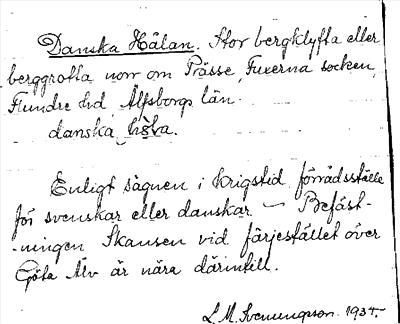 Danska Hålan. Stor bergklyfta eller
berggrotta norr om Prässe, Fuxerna socken,
Flundre hd, Älfsborgs län.
danska
Enligt sägnen i krigstid förrådsställe
för svenskar eller danskar — Befäst-
-ningen Skansen vid färjestället över
Göta Älv är nära därintill.
L. M. Svenungson. 1934.-